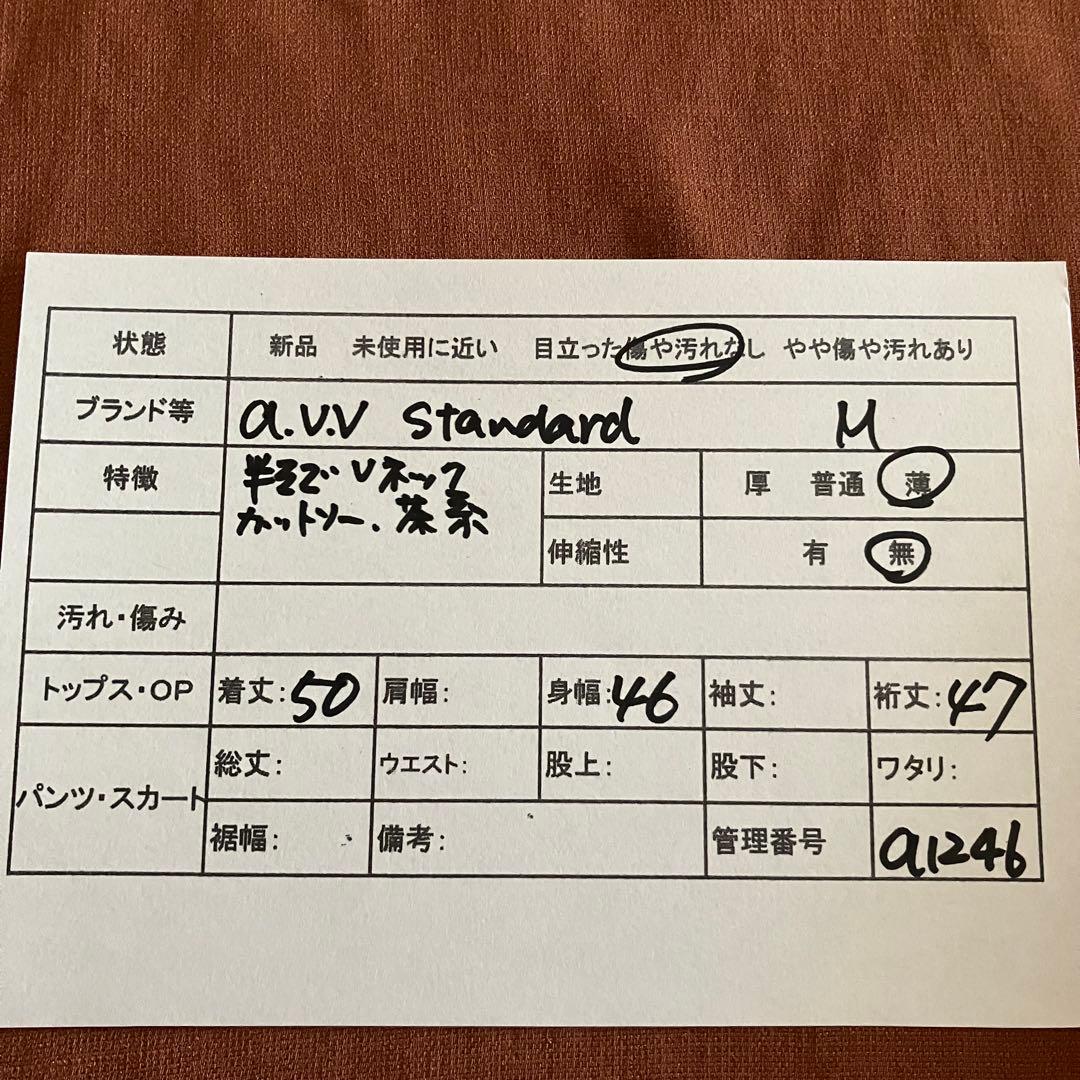 状態 新品 未使用に近い 目立った傷や汚れなし やや傷や汚れあり
ブランド等 a.v.v standard M
特徴 半そで Vネック
カットソー、茶系
生地 厚 普通 薄
伸縮性 有 無
汚れ・傷み
トップス・OP 着丈:50 肩幅: 身幅:46 袖丈: 裄丈:47
パンツ・スカート 総丈: ウエスト: 股上: 股下: ワタリ:
裾幅: 備考: 管理番号 a1246